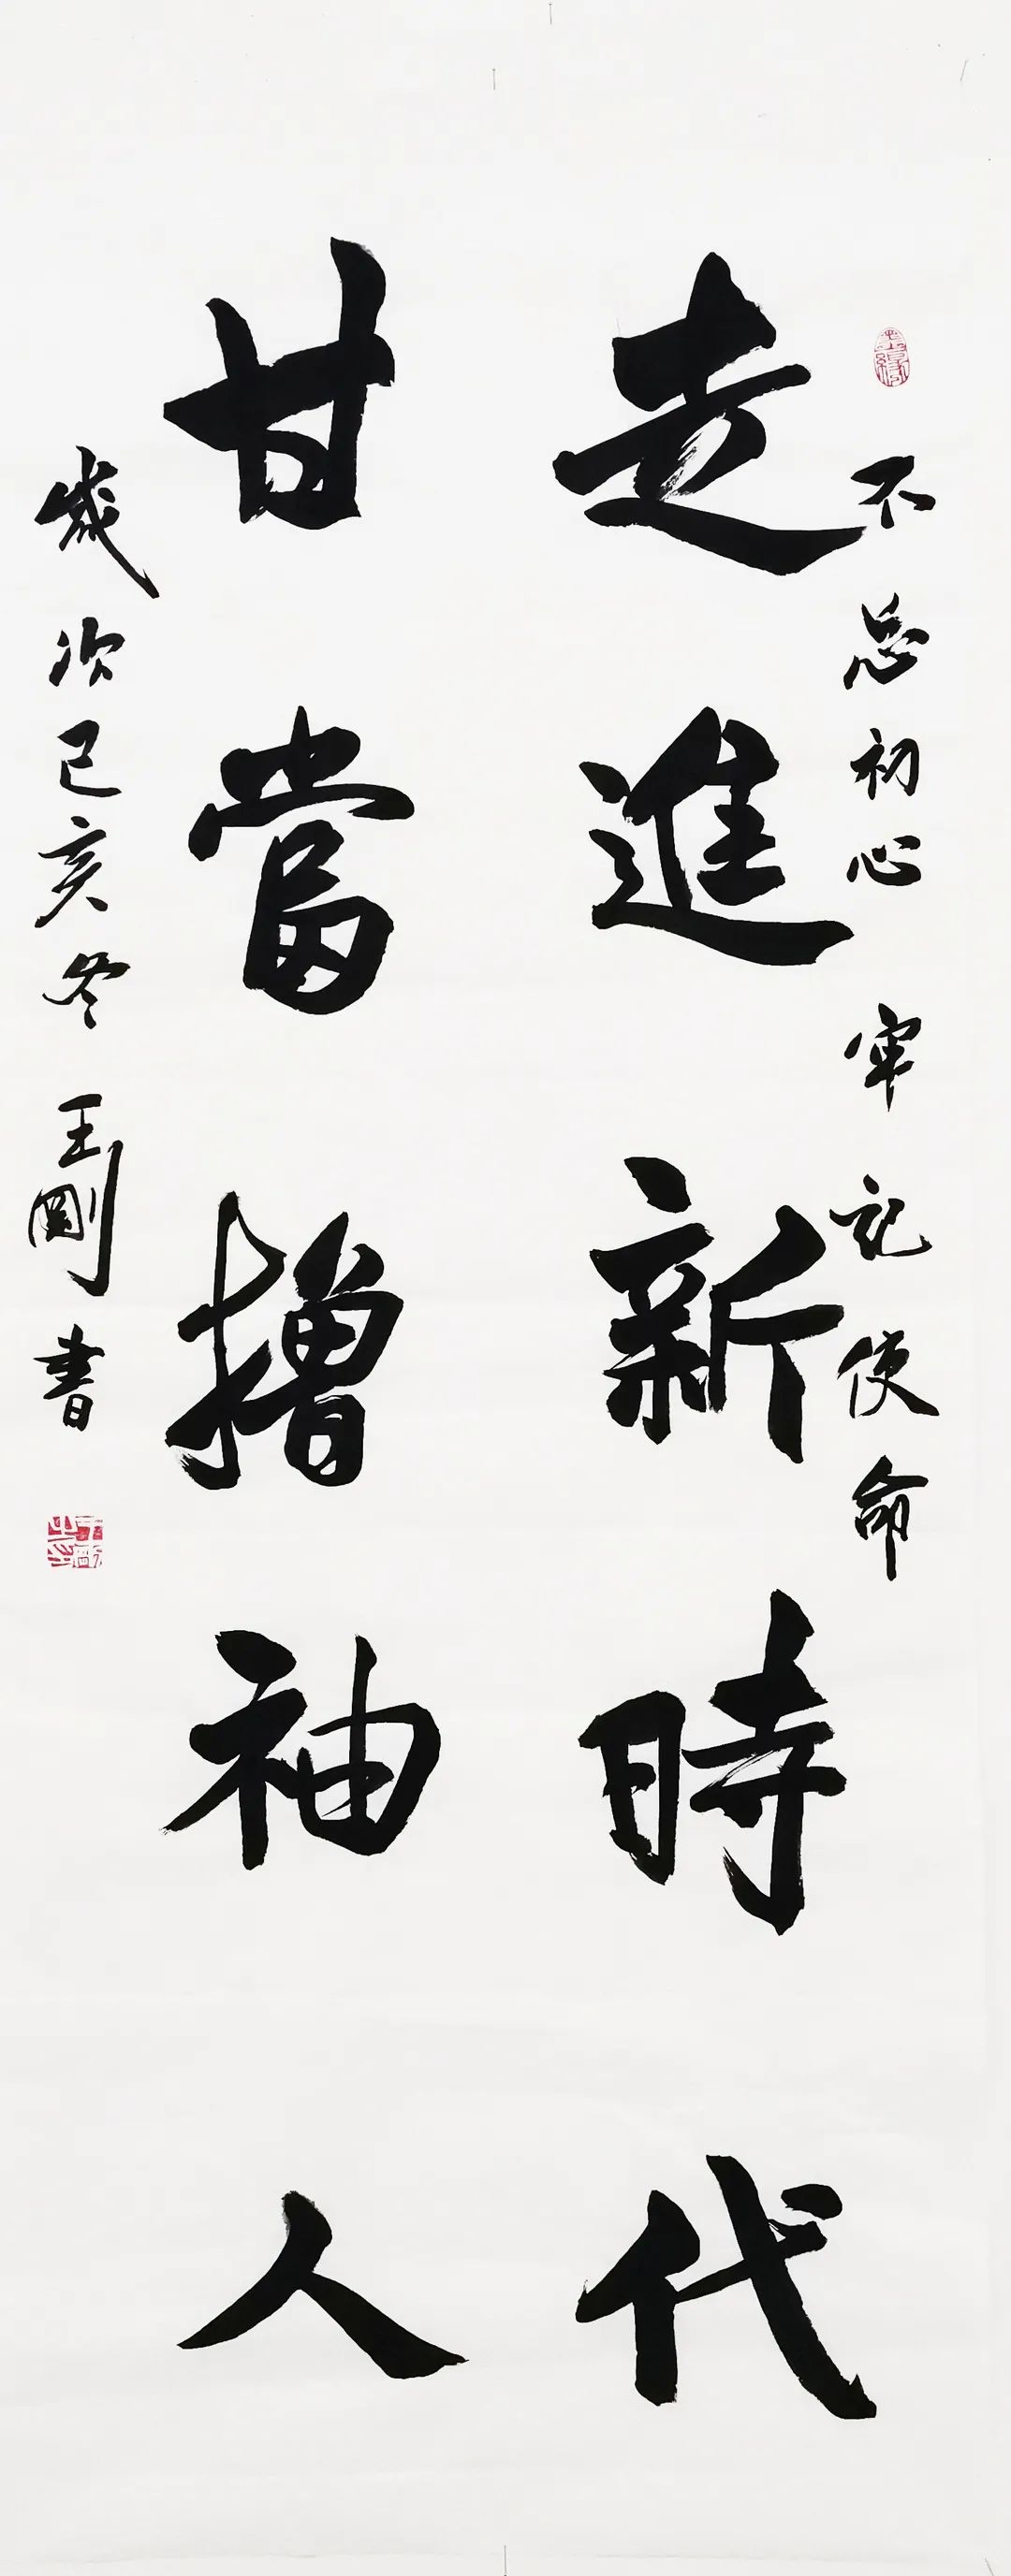 不忘初心牢记使命
走進新時代
甘當擼袖人
歲次己亥冬王剛書
王剛之印